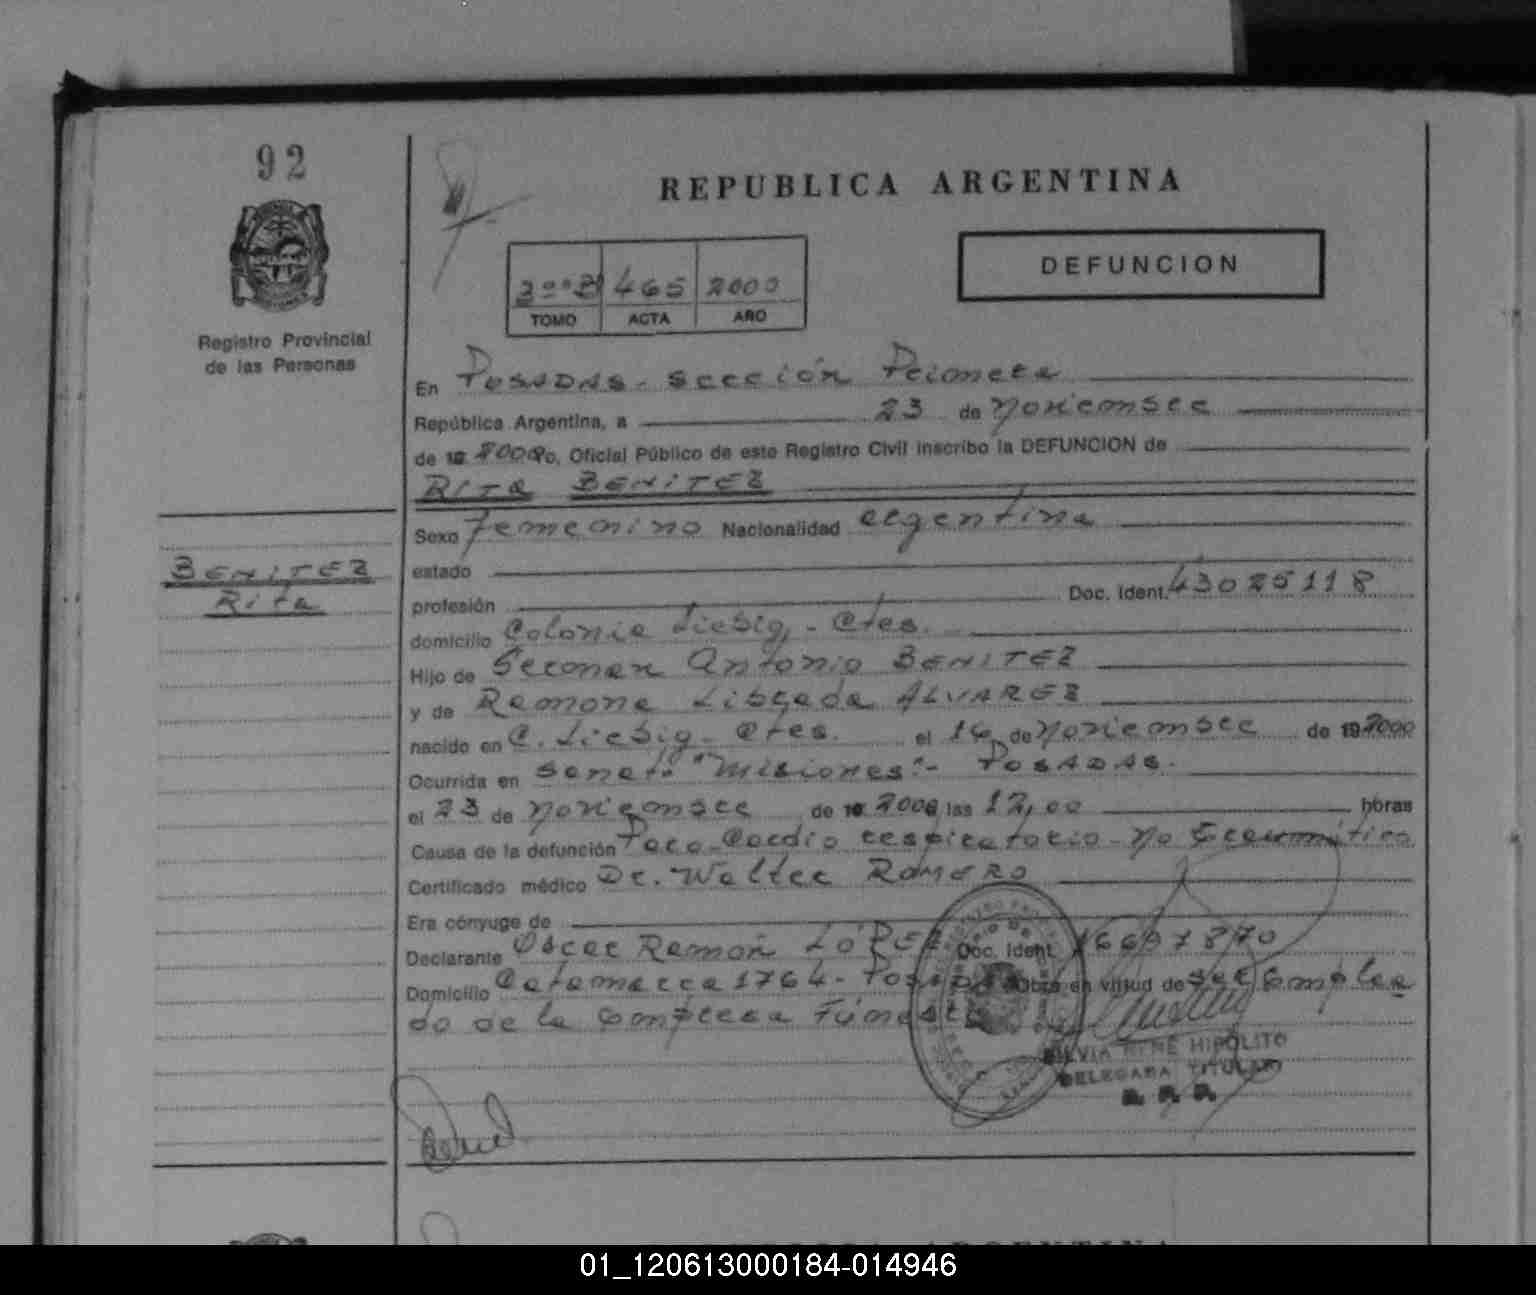 92
REPUBLICA ARGENTINA
DEFUNCION
3º "B" 465 2000
TOMO ACTA AÑO
Registro Provincial
de las Personas
En POSADAS - Sección Primera
República Argentina, a 23 de Noviembre
de 19 2000 Yo, Oficial Público de este Registro Civil inscribo la DEFUNCION de
RITA BENITEZ
BENITEZ
Rita
Sexo femenino Nacionalidad argentina
estado
profesión Doc. Ident. 43025118
domicilio Colonia Liebig, - Ctes.
Hijo de Germán Antonio BENITEZ
y de Ramona Librada ALVAREZ
nacido en C. Liebig - Ctes. el 16 de Noviembre de 19 2000
Ocurrida en Sanat. "Misiones" - POSADAS.
el 23 de Noviembre de 19 2000 a las 12,00 horas
Causa de la defunción Paro-Cardio respiratorio - No traumático
Certificado médico Dr. Walter ROMERO
Era cónyuge de
Declarante Oscar Ramón LÓPEZ Doc. Ident. 16697870
Domicilio Catamarca 1764 - Posadas Obra en virtud de ser emplea
do de la empresa Fúnebre
SILVIA RENE HIPOLITO
DELEGADA TITULAR
R. P. P.
REPUBLICA ARGENTINA
01_120613000184-014946